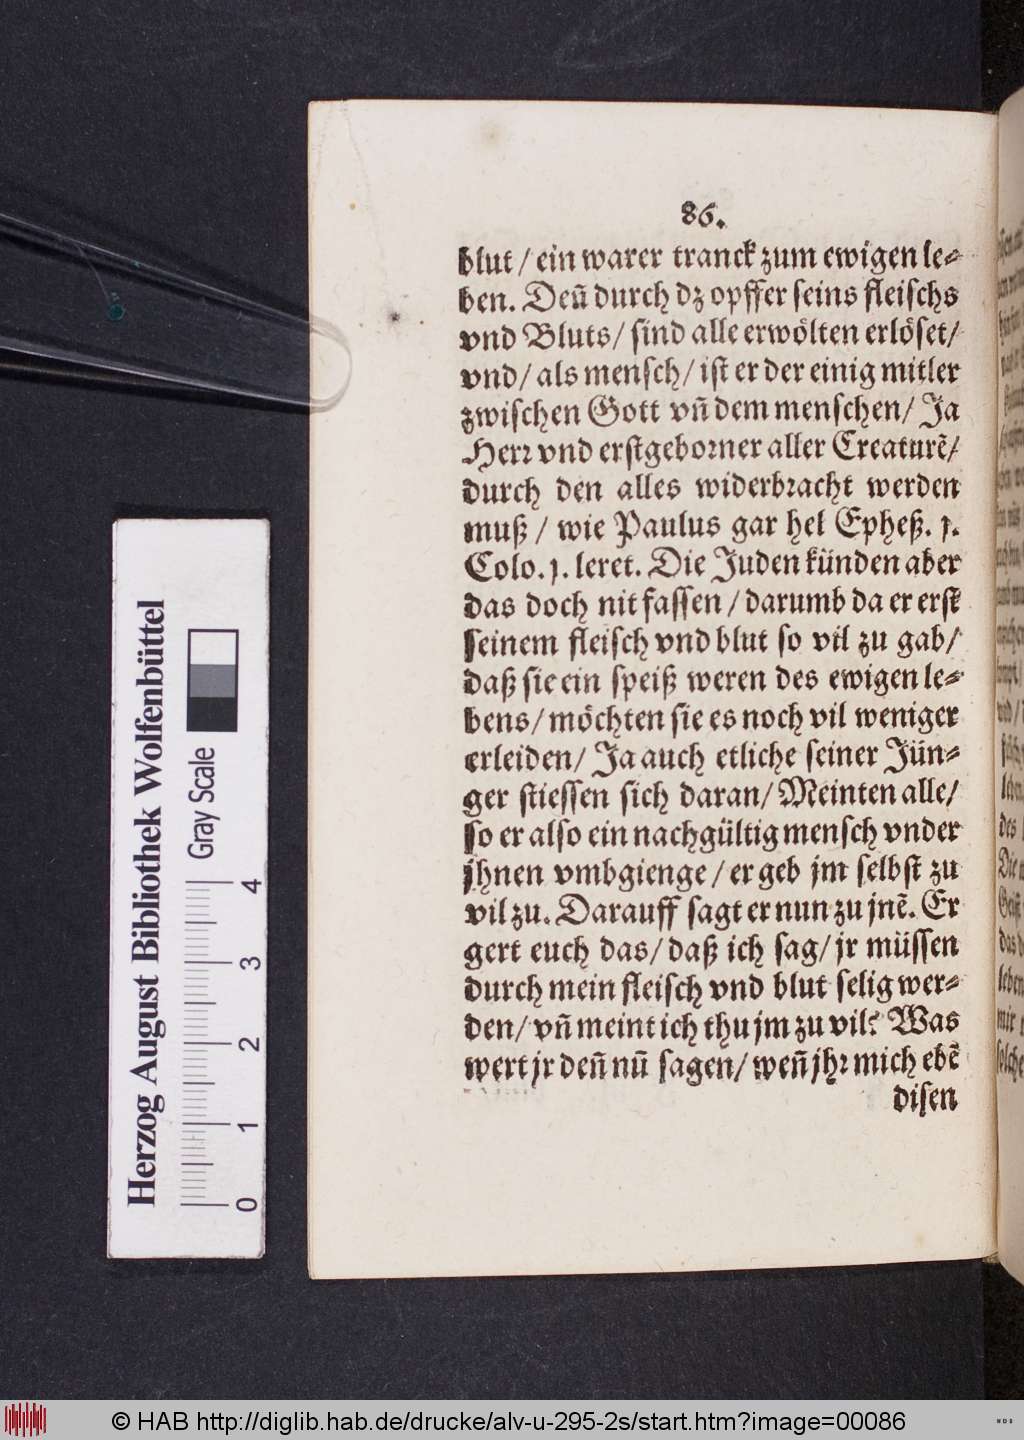 86.
blut / ein warer tranck zum ewigen le⸗
ben. Deñ durch dz opffer seins fleischs
vnd Bluts / sind alle erwölten erlöset /
vnd / als mensch / ist er der einig mitler
zwischen Gott vñ dem menschen / Ja
Herr vnd erstgeborner aller Creaturẽ /
durch den alles widerbracht werden
muß / wie Paulus gar hel Epheß. j.
Colo. j. leret. Die Juden künden aber
das doch nit fassen / darumb da er erst
seinem fleisch vnd blut so vil zu gab /
daß sie ein speiß weren des ewigen le⸗
bens / möchten sie es noch vil weniger
erleiden / Ja auch etliche seiner Jün⸗
ger stiessen sich daran / Meinten alle /
so er also ein nachgültig mensch vnder
jhnen vmbgienge / er geb jm selbst zu
vil zu. Darauff sagt er nun zu jnẽ. Er
gert euch das / daß ich sag / jr müssen
durch mein fleisch vnd blut selig wer⸗
den / vñ meint ich thu jm zu vil? Was
wert jr deñ nũ sagen / weñ jhr mich ebẽ
disen
Herzog August Bibliothek Wolfenbüttel
Gray Scale
0 1 2 3 4
© HAB http://diglib.hab.de/drucke/alv-u-295-2s/start.htm?image=00086